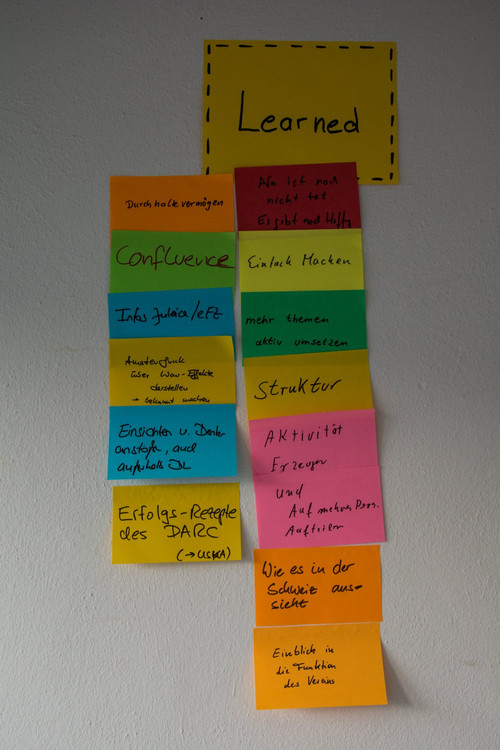 Learned
Durchhaltevermögen
Confluence
Infos Juleica/eFZ
Amateurfunk
über Wow-Effekte
darstellen
→ bekannt machen
Einsichten u. Denk-
anstöße, auch
außerhalb DL
Erfolgs-Rezepte
des DARC
(→ USKA)
Afu ist noch
nicht tot.
Es gibt noch Hoffg
Einfach Machen
mehr themen
aktiv umsetzen
Struktur
Aktivität
Erzeugen
und
Auf mehrere Pers.
Aufteilen
Wie es in der
Schweiz aus-
sieht
Einblick in
die Funktion
des Vereins